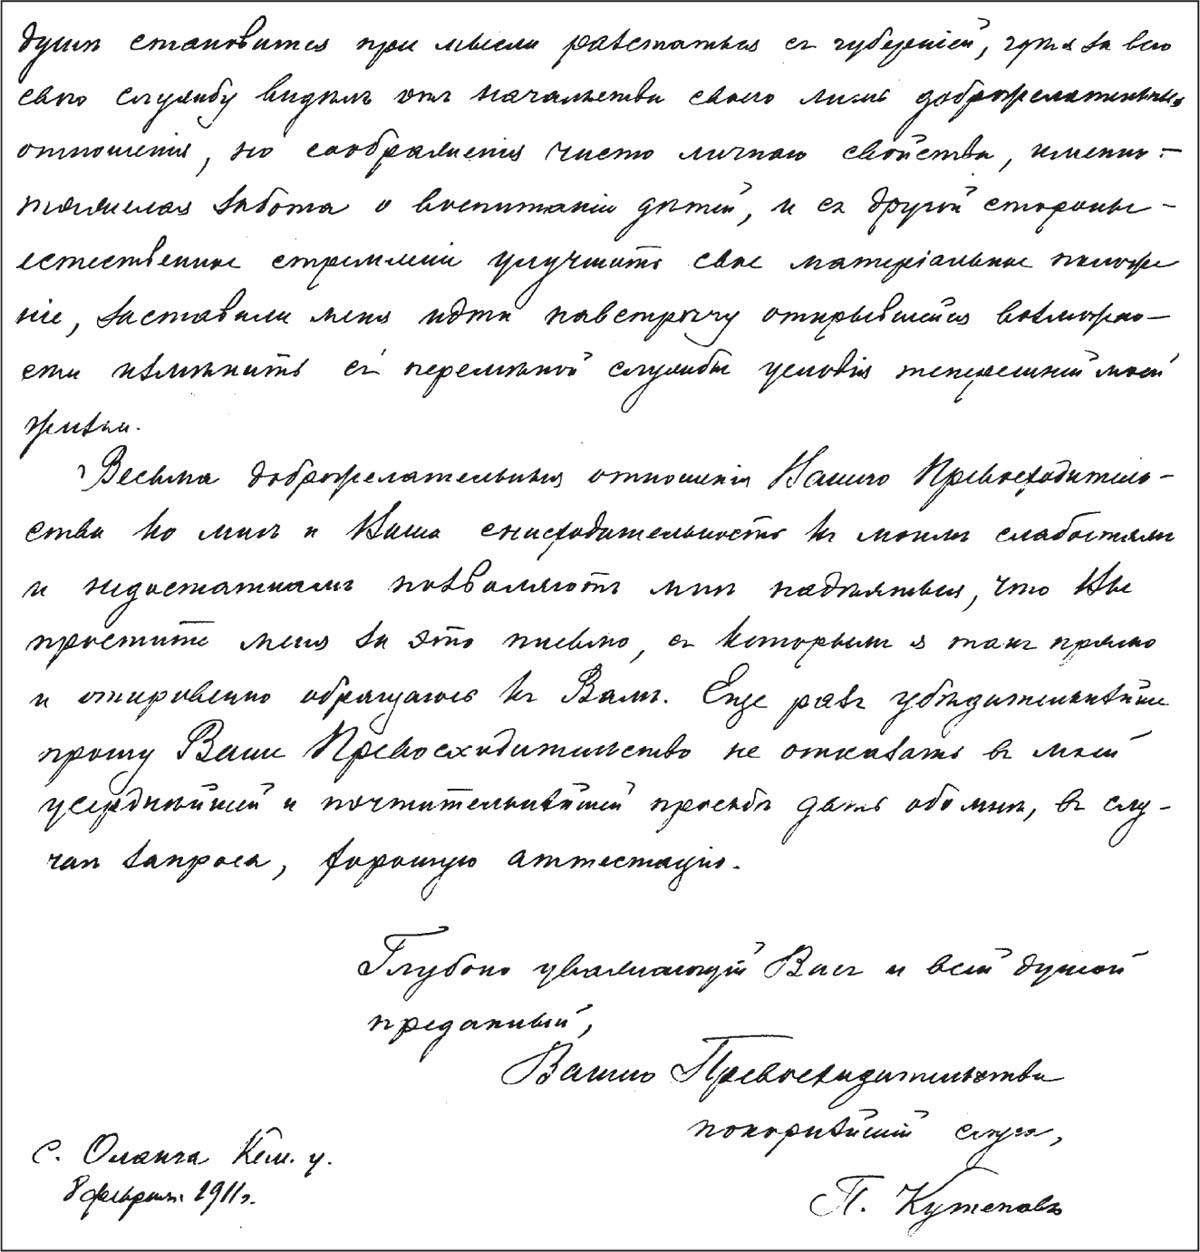 душѣ становится при мысли разстаться съ губерніей, гдѣ я за всю
свою службу видѣлъ отъ начальства своего лишь доброжелательныя
отношенія, но соображенія чисто личнаго свойства, именно –
тяжелая забота о воспитаніи дѣтей, и съ другой стороны –
естественное стремленіе улучшить свое матеріальное положе
ніе, заставили меня идти навстрѣчу открывшейся возможно–
сти измѣнить съ перемѣной службы условія теперешней моей
жизни.
Весьма доброжелательныя отношенія Вашего Превосходитель–
ства ко мнѣ и Ваша снисходительность къ моимъ слабостямъ
и недостаткамъ позволяютъ мнѣ надѣяться, что Вы
простите меня за это письмо, съ которымъ я такъ прямо
и откровенно обращаюсь къ Вамъ. Еще разъ убѣдительнѣйше
прошу Ваше Превосходительство не отказать въ моей
усерднѣйшей и почтительнѣйшей просьбѣ дать обо мнѣ, въ слу–
чаѣ запроса, хорошую аттестацію.
Глубоко уважающій Васъ и всей душой
преданный,
Вашего Превосходительства
покорнѣйшій слуга,
с. Оланга Кем. у.
8 февраля 1911 г.
П. Кутеповъ